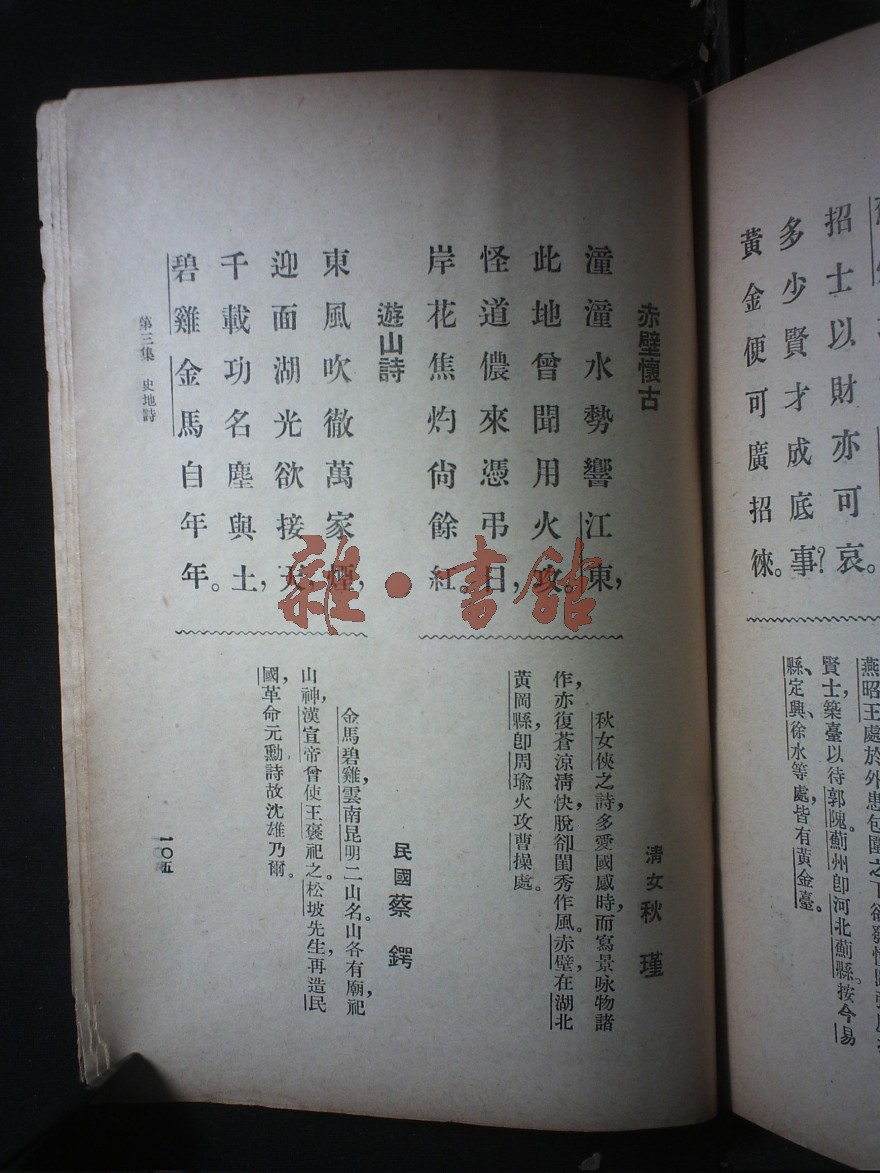 招士以財亦可哀。
多少賢才成底事?
黃金便可廣招徠。
燕昭王處於外患包圍之下欲發憤圖強
賢士,築臺以待郭隗。薊州卽河北薊縣。按今易
縣、定興、徐水等處皆有黃金臺。
赤壁懷古
清女秋瑾
潼潼水勢響江東,
此地曾聞用火攻。
怪道儂來憑弔日,
岸花焦灼尙餘紅。
秋女俠之詩,多愛國感時,而寫景咏物諸
作,亦復蒼涼淸快,脫卻閨秀作風。赤壁在湖北
黃岡縣,卽周瑜火攻曹操處。
遊山詩
民國蔡鍔
東風吹徹萬家煙,
迎面湖光欲接天。
千載功名塵與土,
碧雞金馬自年年。
金馬碧雞,雲南昆明二山名。山各有廟,祀
山神,漢宣帝曾使王褒祀之。松坡先生,再造民
國,革命元勳,詩故沈雄乃爾。
第三集 史地詩
一〇五
雜·書館